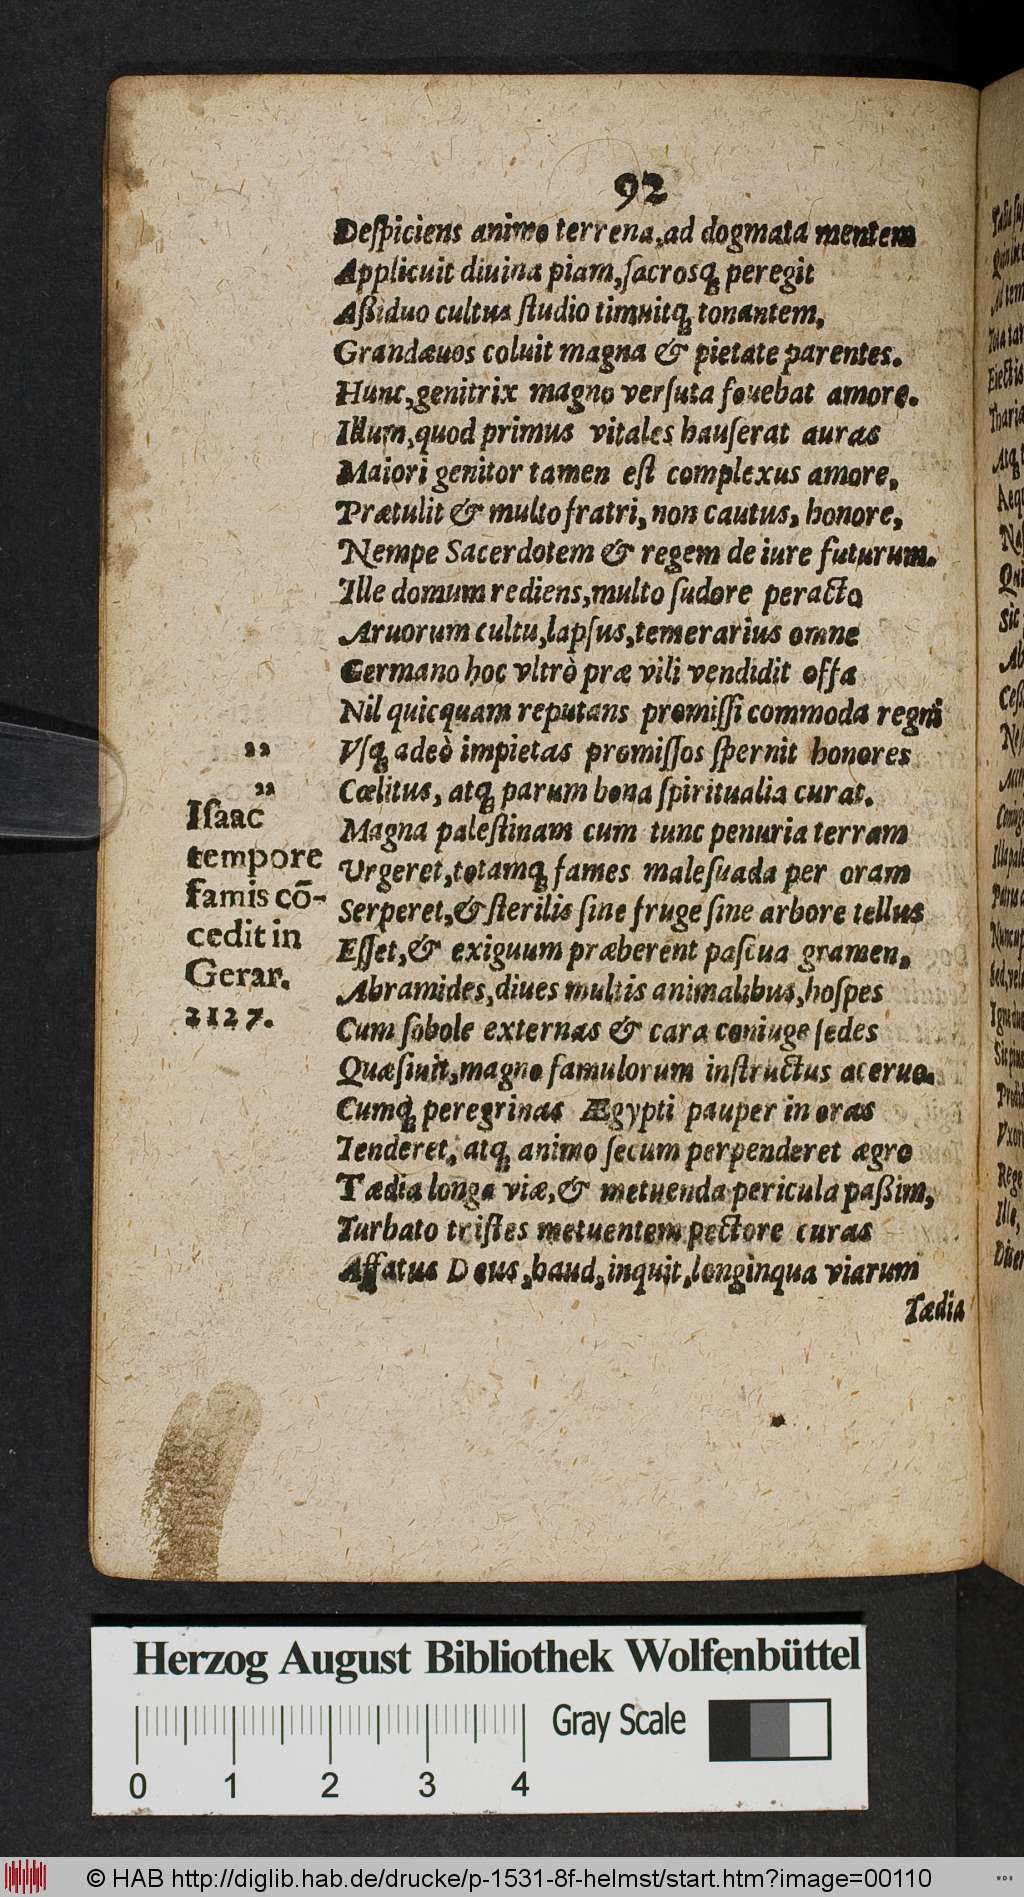 92
Deſpiciens animo terrena, ad dogmata mentem
Applicuit diuina piam, ſacrosq́; peregit
Aßiduo cultus ſtudio timuitq́; tonantem,
Grandæuos coluit magna & pietate parentes.
Hunc, genitrix magno verſuta fouebat amore.
Illum, quod primus vitales hauſerat auras
Maiori genitor tamen eſt complexus amore,
Prætulit & multo fratri, non cautus, honore,
Nempe Sacerdotem & regem de iure futurum.
Ille domum rediens, multo ſudore peracto
Aruorum cultu, lapſus, temerarius omne
Germano hoc vltrò præ vili vendidit offa
Nil quicquam reputans promiſſi commoda regni
„ Vſq́; adeò impietas promiſſos ſpernit honores
„ Cœlitus, atq́; parum bona ſpiritualia curat.
Iſaac
tempore
famis cō-
cedit in
Gerar.
2127.
Magna paleſtinam cum tunc penuria terram
Urgeret, totamq́; fames maleſuada per oram
Serperet, & ſterilis ſine fruge ſine arbore tellus
Eſſet, & exiguum præberent paſcua gramen,
Abramides, diues multis animalibus, hoſpes
Cum ſobole externas & cara coniuge ſedes
Quæſiuit, magno famulorum inſtructus aceruo.
Cumq́; peregrinas Ægypti pauper in oras
Tenderet, atq́; animo ſecum perpenderet ægro
Tædia longa viæ, & metuenda pericula paßim,
Turbato triſtes metuentem pectore curas
Affatus Deus, haud, inquit, longinqua viarum
Tædia
Herzog August Bibliothek Wolfenbüttel
Gray Scale
0 1 2 3 4
© HAB http://diglib.hab.de/drucke/p-1531-8f-helmst/start.htm?image=00110